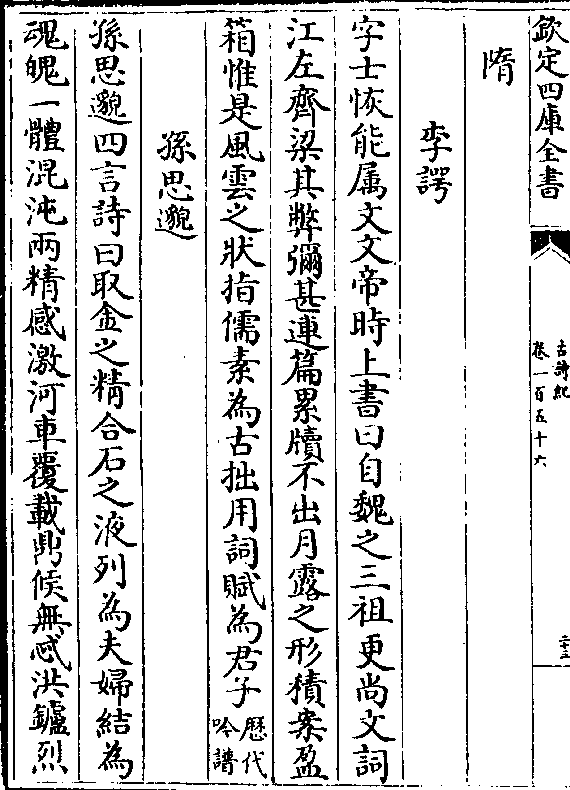 欽定四庫全書
古詩紀
卷一百五十六
二十三
隋
李諤
字士恢能属文文帝時上書曰自魏之三祖更尚文詞
江左齊梁其弊彌甚連篇累牘不出月露之形積案盈
箱惟是風雲之狀指儒素為古拙用詞賦為君子歴代吟譜
孫思邈
孫思邈四言詩曰取金之精合石之液列為夫婦結為
魂魄一體混沌兩精感激河車覆載鼎候無忒洪鑪烈